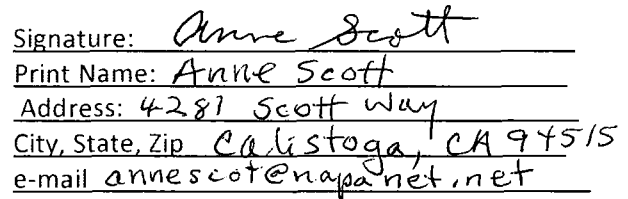 Signature: Anne Scott
Print Name: Anne Scott
Address: 4281 Scott Way
City, State, Zip Calistoga, CA 94515
e-mail annescot@napanet.net